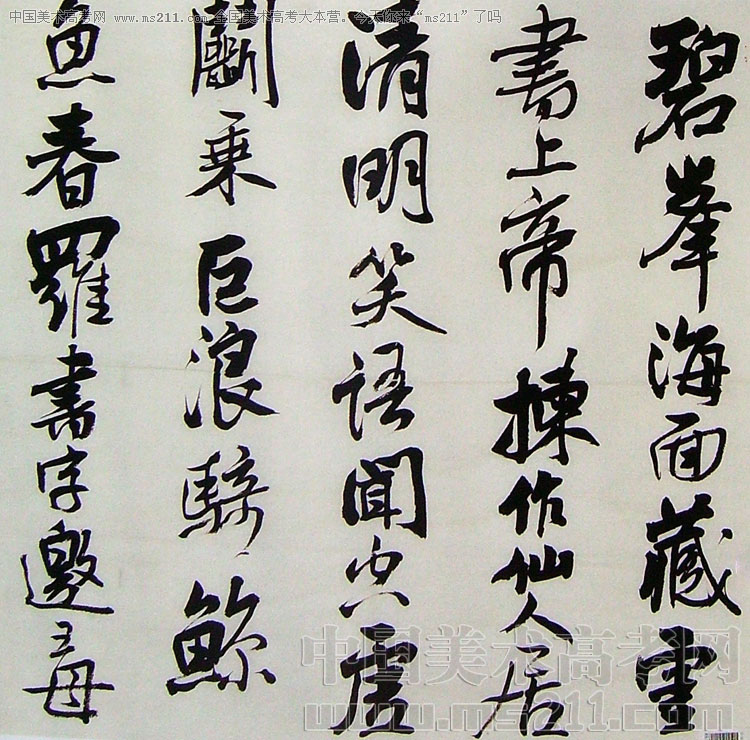 中国美术高考网 www.ms211.com 全国美术高考大本营。今天你来“ms211”了吗
碧峯海面藏靈
書上帝揀作仙人居
清明笑語聞空虛
鬭乘巨浪騎鯨
魚春羅書字邀王母
中国美术高考网
www.ms211.com